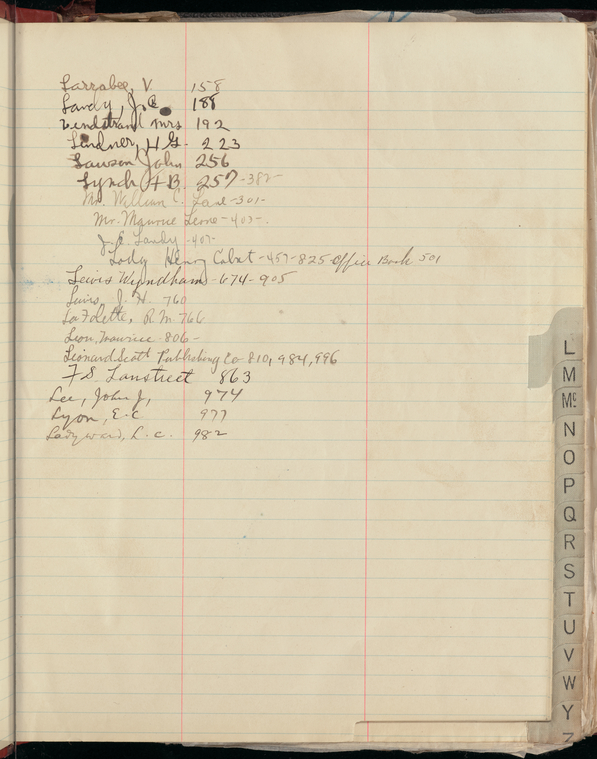 Larrabee, V. 158
Landy, J.C. 188
Lindstrand Mrs 192
Lindner, H G. 223
Lawson John 256
Lynch F B. 257-382-
Mr. William C. Lane-301-
Mr. Maurice Leone-403-.
J. C. Landy -407-
Lody Henry Cabot-457-825 Office Book 501
Lewis Wyndham-674-905
Lewis, J. H. 760
LaFolette, R M. 766
Leon, Maurice-806-
Leonard Scott Publishing Co-810, 984, 996
F S. Lanstreet 863
Lee, John J, 974
Lyon, E.C 977
Ledyward, L.C. 982
L
M
Mc
N
O
P
Q
R
S
T
U
V
W
Y
Z